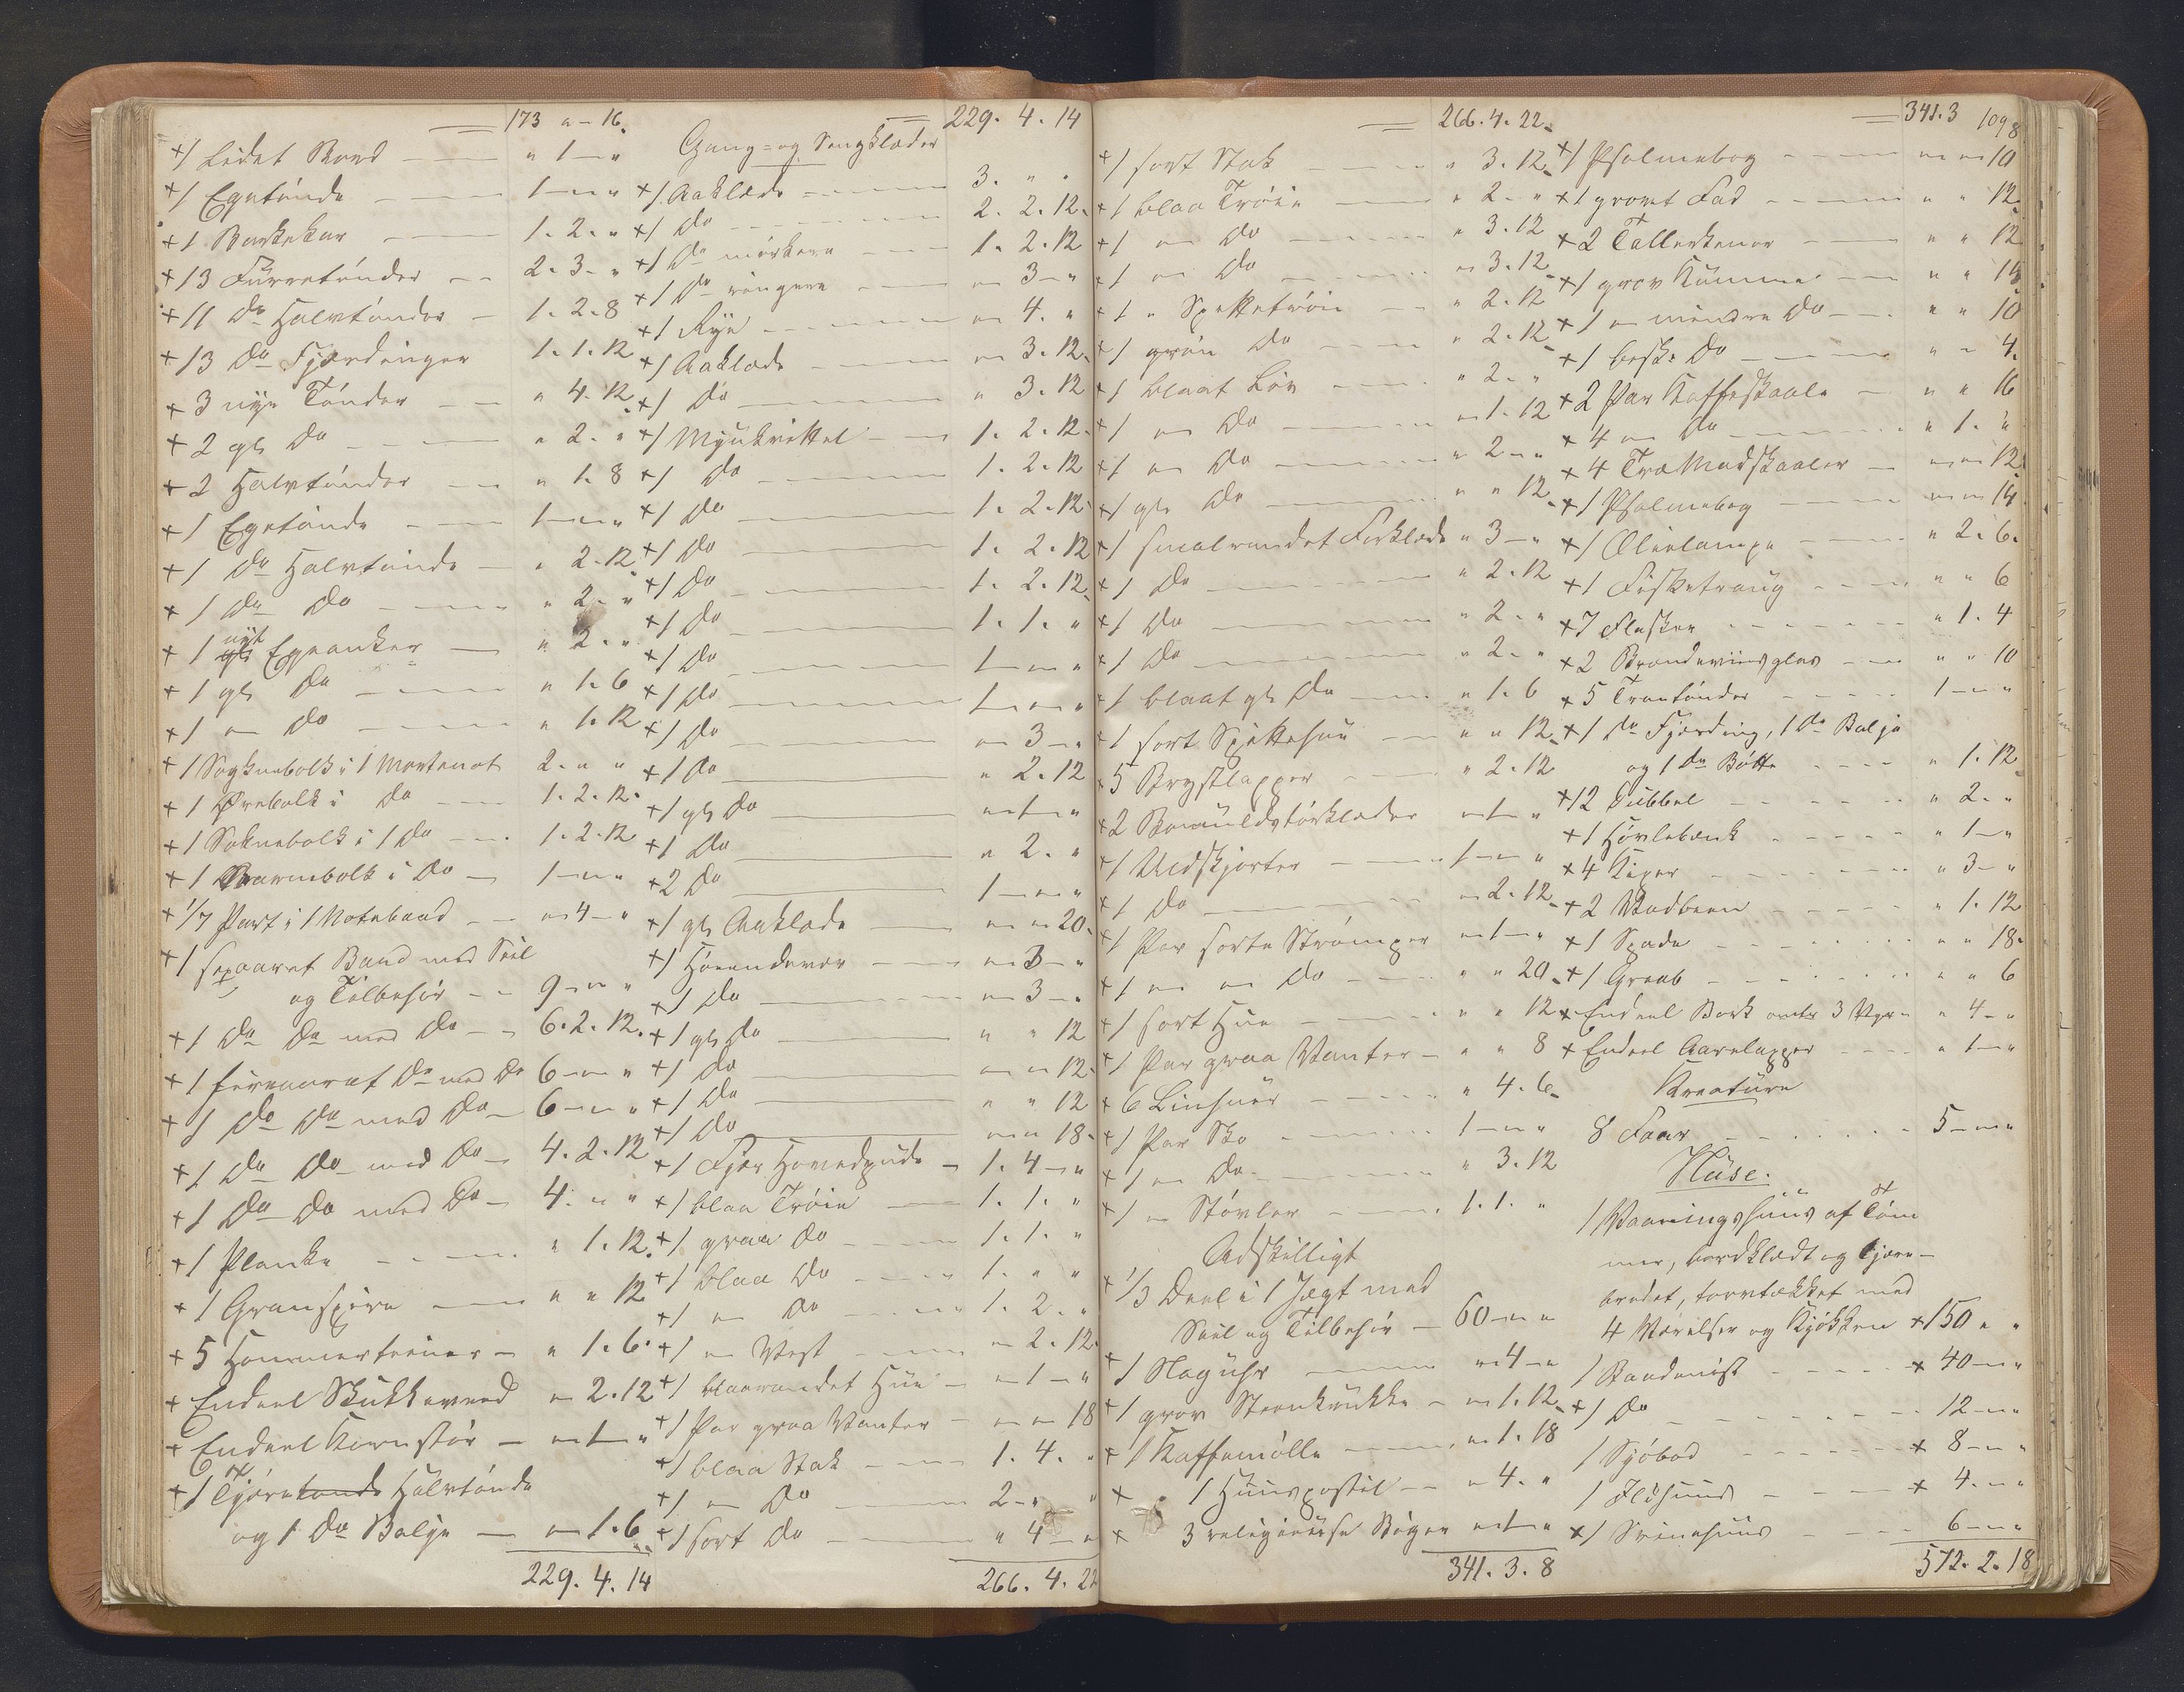 173 " - 16.
+1 Lidet Bord " 1 - "
+1 Egetønde 1 - " "
+1 Barkekar 1. 2. "
+13 Furretønder 2. 3 - "
+11 Do Halvtønder 1. 2. 8
+13 Do Fjerdinger 1. 1. 12
+3 nye Tønder " 4. 12.
+2 gl. Do " 2. "
+2 Halvtønder " 1. 8
+1 Egetønde 1 - " "
+1 Do Halvtønde " 2. 12
+1 Do Do " 2. "
+1 nyt Egeanker " 2. "
+1 gl. Do " 1. 6
+1 " Do " 1. 12
+1 Søgknebolk i 1 Mortenot 2. " "
+1 Ørebolk i Do 1. 2. 12.
+1 Søknebolk i 1 Do 1. 2. 12
+1 Barmbolk i Do 1 - " "
+1/7 Part i 1 Notebaad " 4 - "
+1 sexaaret Baad med Seil
og Tilbehør 9 - " "
+1 Do Do med Do 6. 2. 12.
+1 fireaaret Do med Do 6 - " "
+1 Do Do med Do 6 - " "
+1 Do Do med Do 4. 2. 12
+1 Do Do med Do 4. " "
+1 Planke " 1. 12.
+1 Granspire " " 12
+5 Hommerteiner " 1. 6.
+ Endeel Stukkeveed " 2. 12
+ Endeel Kornstør " 1 - "
+1 Tjæretønde Halvtønde
og 1 Do Balje " 1. 6
229. 4. 14
229. 4. 14
Gang- og Sengklæder
+1 Aaklæde 3. " "
+1 Do 2. 2. 12.
+1 Do mørkere 1. 2. 12
+1 Do ringere " 3 - "
+1 Rye " 4. "
+1 Aaklæde " 3. 12.
+1 Do " 3. 12
+1 Myukvittel 1. 2. 12.
+1 Do 1. 2. 12
+1 Do 1. 2. 12.
+1 Do 1. 2. 12
+1 Do 1. 2. 12.
+1 Do 1. 1. "
+1 Do 1 - " "
+1 Do 1 - " "
+1 Do " 3 - "
+1 Do " 2. 12
+1 gl. Do " 1 - "
+1 Do " 2. "
+2 Do 1 - " "
+1 gl. Aaklæde " " 20.
+1 Hovendever " 3 - "
+1 Do " 3 - "
+1 gl. Do " " 12
+1 Do " " 12.
+1 Do " " 12
+1 Do " " 18.
+1 Fjær Hovedpude 1. 4 - "
+1 blaa Trøie 1. 1. "
+1 graa Do 1. 1. "
+1 blaa Do 1. " "
+1 " Do 1. 2. "
+1 " Vest " 2. 12.
+1 blaarandet Hue " 1 - "
+1 Par graa Vanter " " 18
+1 blaa Stak 1. 4. "
+1 " Do 2 - " "
+1 sort Do " 4 - "
266. 4. 22
266. 4. 22.
+1 sort Stak " 3. 12.
+1 blaa Trøie " 2. "
+1 " Do " 3. 12
+1 " Do " 3. 12.
+1 " Spettetrøie " 2. 12
+1 grøn Do " 2. 12.
+1 blaat Liv " 2. "
+1 " Do " 1. 12
+1 " Do " 2 - "
+1 gl. Do " " 12.
+1 smalrandet Forklæde " 3 - "
+1 Do " 2. 12
+1 Do " 2. "
+1 Do " 2. "
+1 blaat gl. Do " 1. 6
+1 sort Spettehue " " 12.
+5 Brystlapper " 2. 12
+2 Bomuldstørklæder " 1 - "
+1 Uldskjorter 1 - " "
+1 Do " 2. 12.
+1 Par sorte Strømper " 1 - "
+1 " " Do " " 20.
+1 sort Hue " " 12
+1 Par graa Vanter " " 8
+6 Linhuer " 4. 6.
+1 Par Sko 1 - " "
+1 " Do " 3. 12
+1 " Støvler 1. 1. "
Adskilligt
+1/3 Deel i 1 Jægt med
Seil og Tilbehør 60 - " "
+1 Slaguhr " 4 - "
+1 grov Steenkrukke " 1. 12.
+1 Kaffemølle " 1. 18
+ 1 Huuspostil " 4. "
+ 3 religieuse Bøger " 1 - "
341. 3. 8
341. 3 8
109
+1 Psalmebog " " 10
+1 gromt Fad " " 12.
+2 Tallerkener " " 12
+1 grov Kumme " " 14
+1 " mindre Do " " 10
+1 besk. Do " " 4.
+2 Par Kaffeskaale " " 16
+4 " Do " 1. "
+4 Træ Madskaaler " " 12
+1 Psalmebog " " 14
+1 Ølielampe " 2. 6.
+1 Fisketraug " " 6
+7 Flasker " 1. 4
+2 Brændeviinsglas " " 10
+5 Trantønder 1 - " "
+1 Do Fjerding, 1 Do Balje
og 1 Do Bøtte " 1. 12
+12 Dubbel " 2. "
+1 Høvlebænk " 1 - "
+4 Kiper " 3 - "
+2 Vadbeen " 1. 12
+1 Spade " " 18.
+1 Greeb " " 6
+ Endeel Bark omtr 3 Vger " 4 - "
+ Endeel Aarelapper " 1 - "
Kreature
8 Faar 5 - " "
Huse:
1 Vaaningshuus af Töm
mer, bordklædt og tjære-
bredet, torvtækket med
4 Værelser og Kjøkken +150 " "
1 Baadnøst + 40 - " "
+1 Do 12 - " "
1 Sjøbod + 8 - " "
1 Ildhuus + 4. " "
+1 Svinehuus 6 - " "
572. 2. 18